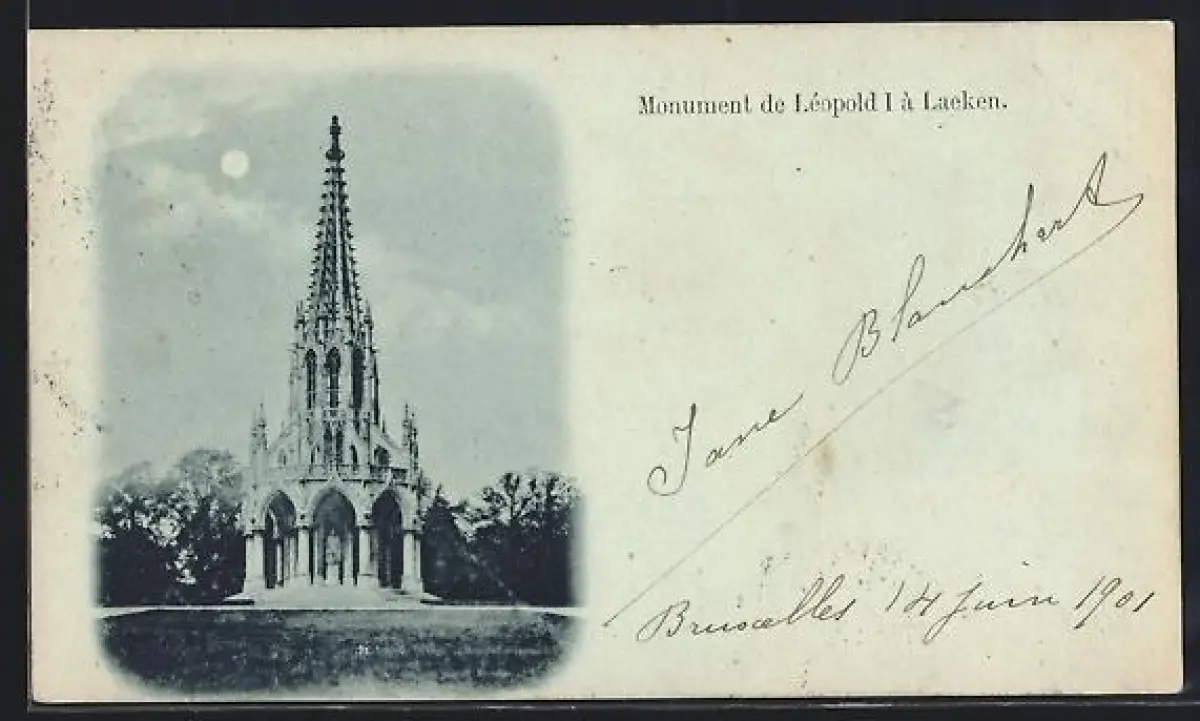 Monument de Léopold I à Laeken.
Jane Blanchart
Bruxelles 14 Juin 1901